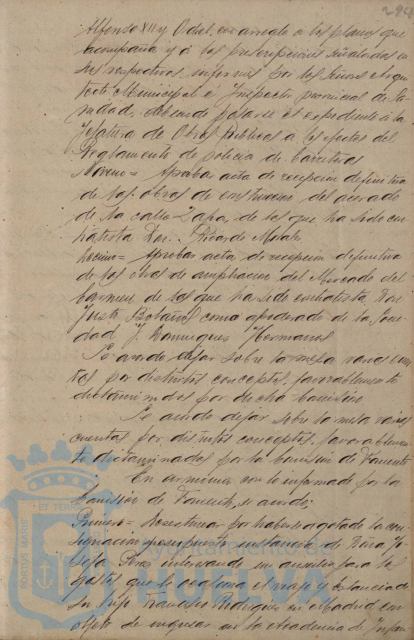 294
Alfonso XII y Odiel, con arreglo a los planos que
acompaña y a las prescripciones señaladas en
sus respectivos informes por los Señores Arqui
tecto Municipal e Inspector provincial de Sa
nidad, debiendo pasarse el expediente a la
Jefatura de Obras Públicas a los efectos del
Reglamento de policía de carreteras
Noveno = Aprobar acta de recepción definitiva
de las obras de construcción del acerado
de la calle Zafra, de las que ha sido con
tratista Don Ricardo Morales
Décimo = Aprobar acta de recepción definitiva
de las obras de ampliación del Mercado del
Carmen de las que ha sido contratista Don
Justo Bolaños como apoderado de la Socie
dad J. Dominguez Hermanos
Se acordó dejar sobre la mesa varias cuen
tas por distintos conceptos, favorablemente
dictaminados por dicha Comisión
Se acordó dejar sobre la mesa varias
cuentas por distintos conceptos, favorablemen
te dictaminados por la Comisión de Fomento
En armonía con lo informado por la
Comisión de Fomento, se acordó:
Primero = Desestimar por haberse agotado la con
signación presupuesta instancia de Doña
Josefa Pérez interesando un auxilio para los
gastos que le ocasiona el viaje y estancia de
su hijo Francisco Rodriguez en Madrid con
objeto de ingresar en la Academia de Infan
PORTUS MARIS
ET TERRE
Ayuntamiento de
HUELVA